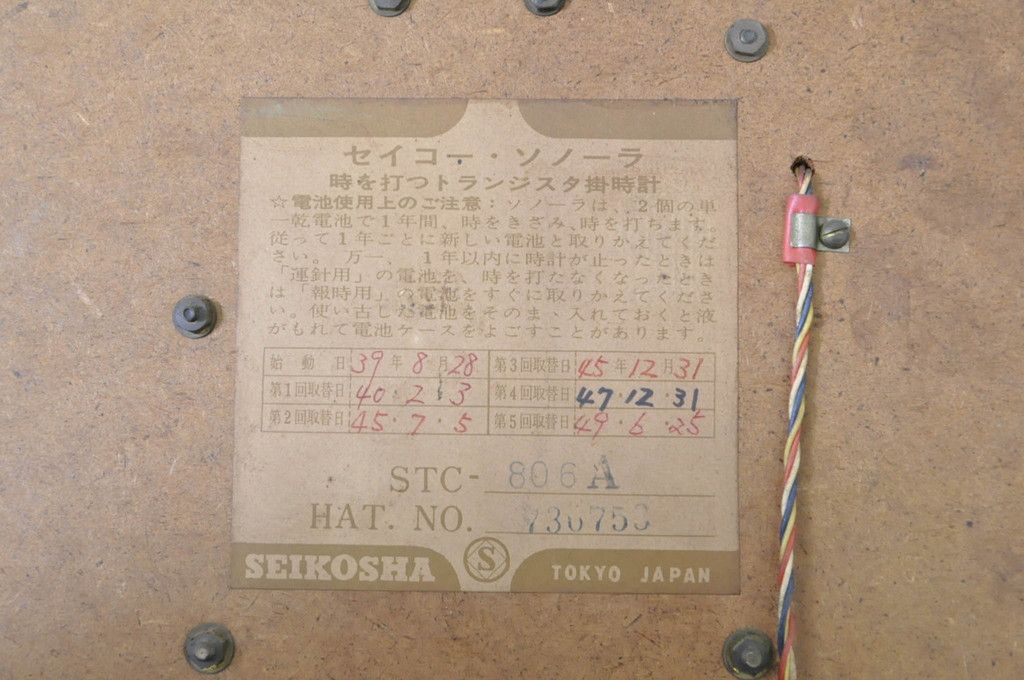 セイコー・ソノーラ
時を打つトランジスタ掛時計
☆電池使用上のご注意：ソノーラは、2個の単
一乾電池で1年間、時をきざみ、時を打ちます。
従って1年ごとに新しい電池と取りかえてくだ
さい。万一、1年以内に時計が止ったときは
「運針用」の電池を、時を打たなくなったとき
は「報時用」の電池をすぐに取りかえてくださ
い。使い古した電池をそのまゝ入れておくと液
がもれて電池ケースをよごすことがあります。
始動日 39年8月28 第3回取替日 45年12月31
第1回取替日 40.2.3 第4回取替日 47.12.31
第2回取替日 45.7.5 第5回取替日 49.6.25
STC-806A
HAT. NO.
SEIKOSHA S TOKYO JAPAN